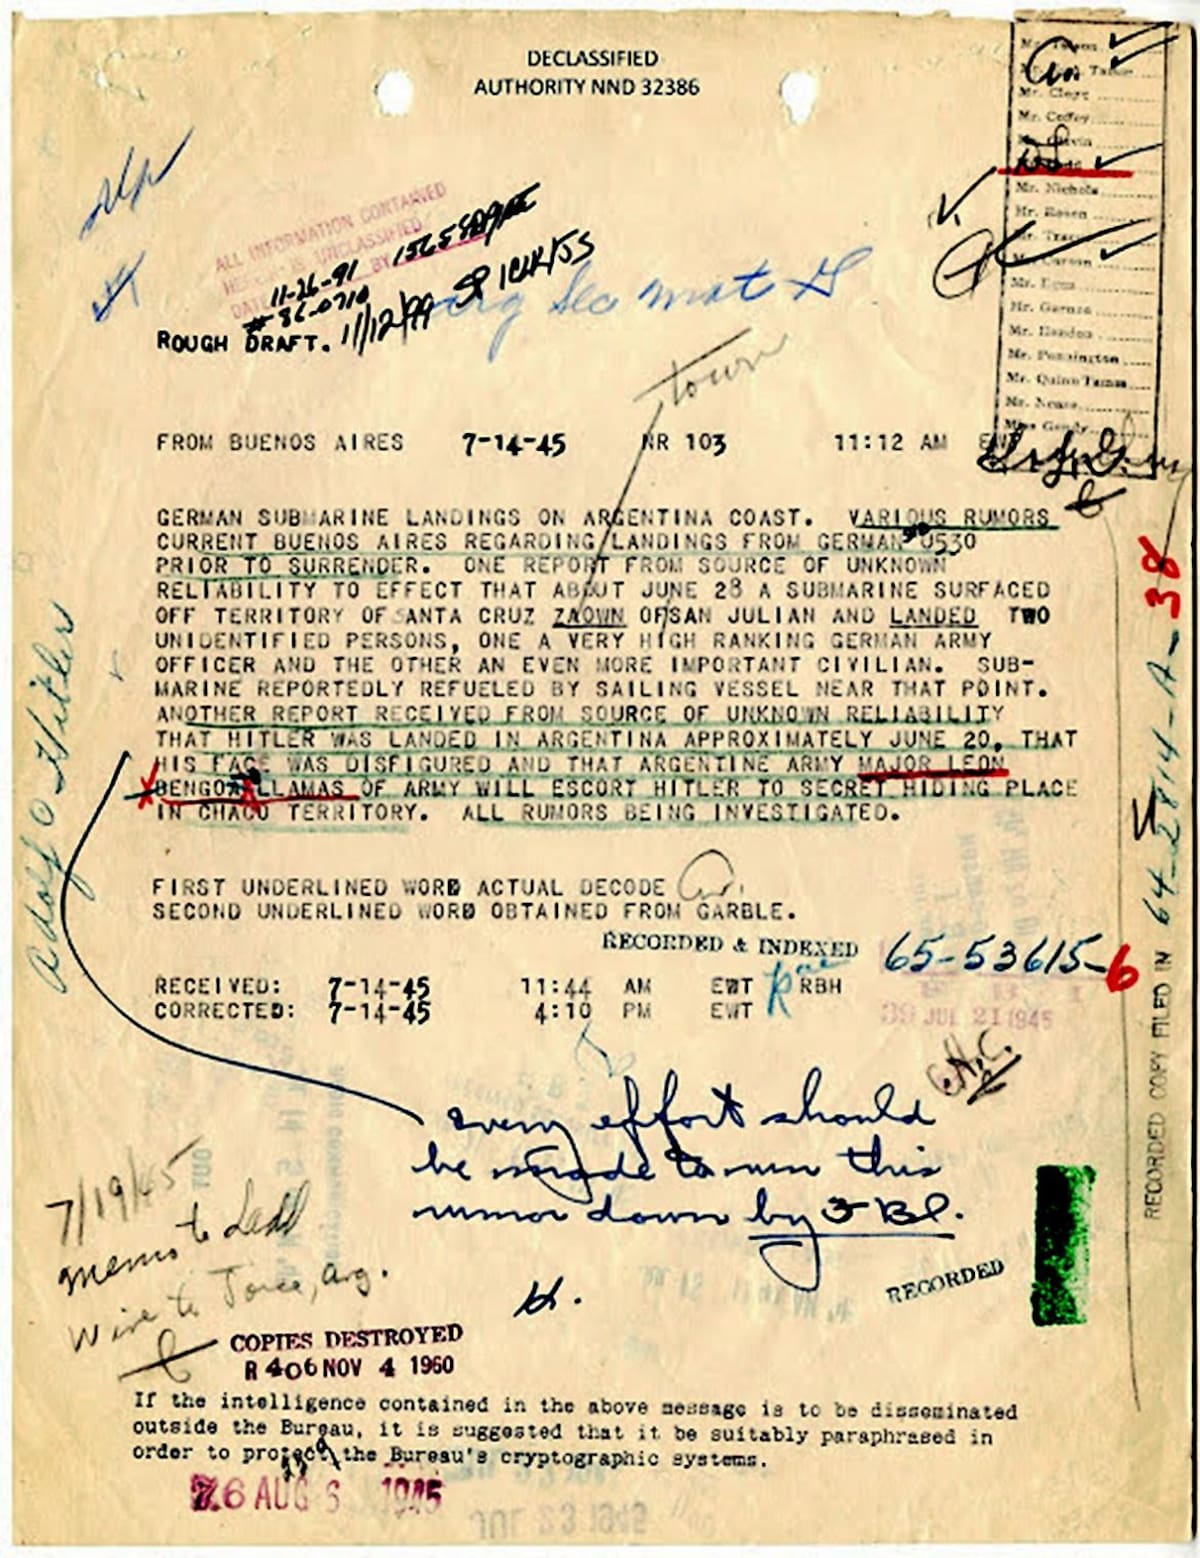 DECLASSIFIED
AUTHORITY NND 32386
Mr. Clegg
Mr. Coffey
Mr. Nichols
Mr. Rosen
Mr. Tracy
Mr. Carson
Mr. Egan
Mr. Hendon
Mr. Pennington
Mr. Quinn Tamm
Mr. Nease
Miss Gandy
ALL INFORMATION CONTAINED
11-26-91
11/12/99
ROUGH DRAFT.
town
FROM BUENOS AIRES 7-14-45 NR 103 11:12 AM
GERMAN SUBMARINE LANDINGS ON ARGENTINA COAST. VARIOUS RUMORS
CURRENT BUENOS AIRES REGARDING LANDINGS FROM GERMAN U530
PRIOR TO SURRENDER. ONE REPORT FROM SOURCE OF UNKNOWN
RELIABILITY TO EFFECT THAT ABOUT JUNE 28 A SUBMARINE SURFACED
OFF TERRITORY OF SANTA CRUZ ZAOWN OF SAN JULIAN AND LANDED TWO
UNIDENTIFIED PERSONS, ONE A VERY HIGH RANKING GERMAN ARMY
OFFICER AND THE OTHER AN EVEN MORE IMPORTANT CIVILIAN. SUB-
MARINE REPORTEDLY REFUELED BY SAILING VESSEL NEAR THAT POINT.
ANOTHER REPORT RECEIVED FROM SOURCE OF UNKNOWN RELIABILITY
THAT HITLER WAS LANDED IN ARGENTINA APPROXIMATELY JUNE 20, THAT
HIS FACE WAS DISFIGURED AND THAT ARGENTINE ARMY MAJOR LEON
BENGOA LLAMAS OF ARMY WILL ESCORT HITLER TO SECRET HIDING PLACE
IN CHACO TERRITORY. ALL RUMORS BEING INVESTIGATED.
FIRST UNDERLINED WORD ACTUAL DECODE
SECOND UNDERLINED WORD OBTAINED FROM GARBLE.
RECORDED & INDEXED 65-53615-6
RECEIVED: 7-14-45 11:44 AM EWT RBH
CORRECTED: 7-14-45 4:10 PM EWT
39 JUL 21 1945
Adolf Hitler
RECORDED COPY FILED IN 64-2814-A-38
every effort should
be made to run this
rumor down by FBI.
H.
RECORDED
7/19/45
memo to Ladd
Wire to Joice, Arg.
COPIES DESTROYED
R 406 NOV 4 1960
If the intelligence contained in the above message is to be disseminated
outside the Bureau, it is suggested that it be suitably paraphrased in
order to protect the Bureau's cryptographic systems.
76 AUG 6 1945
JUL 23 1945